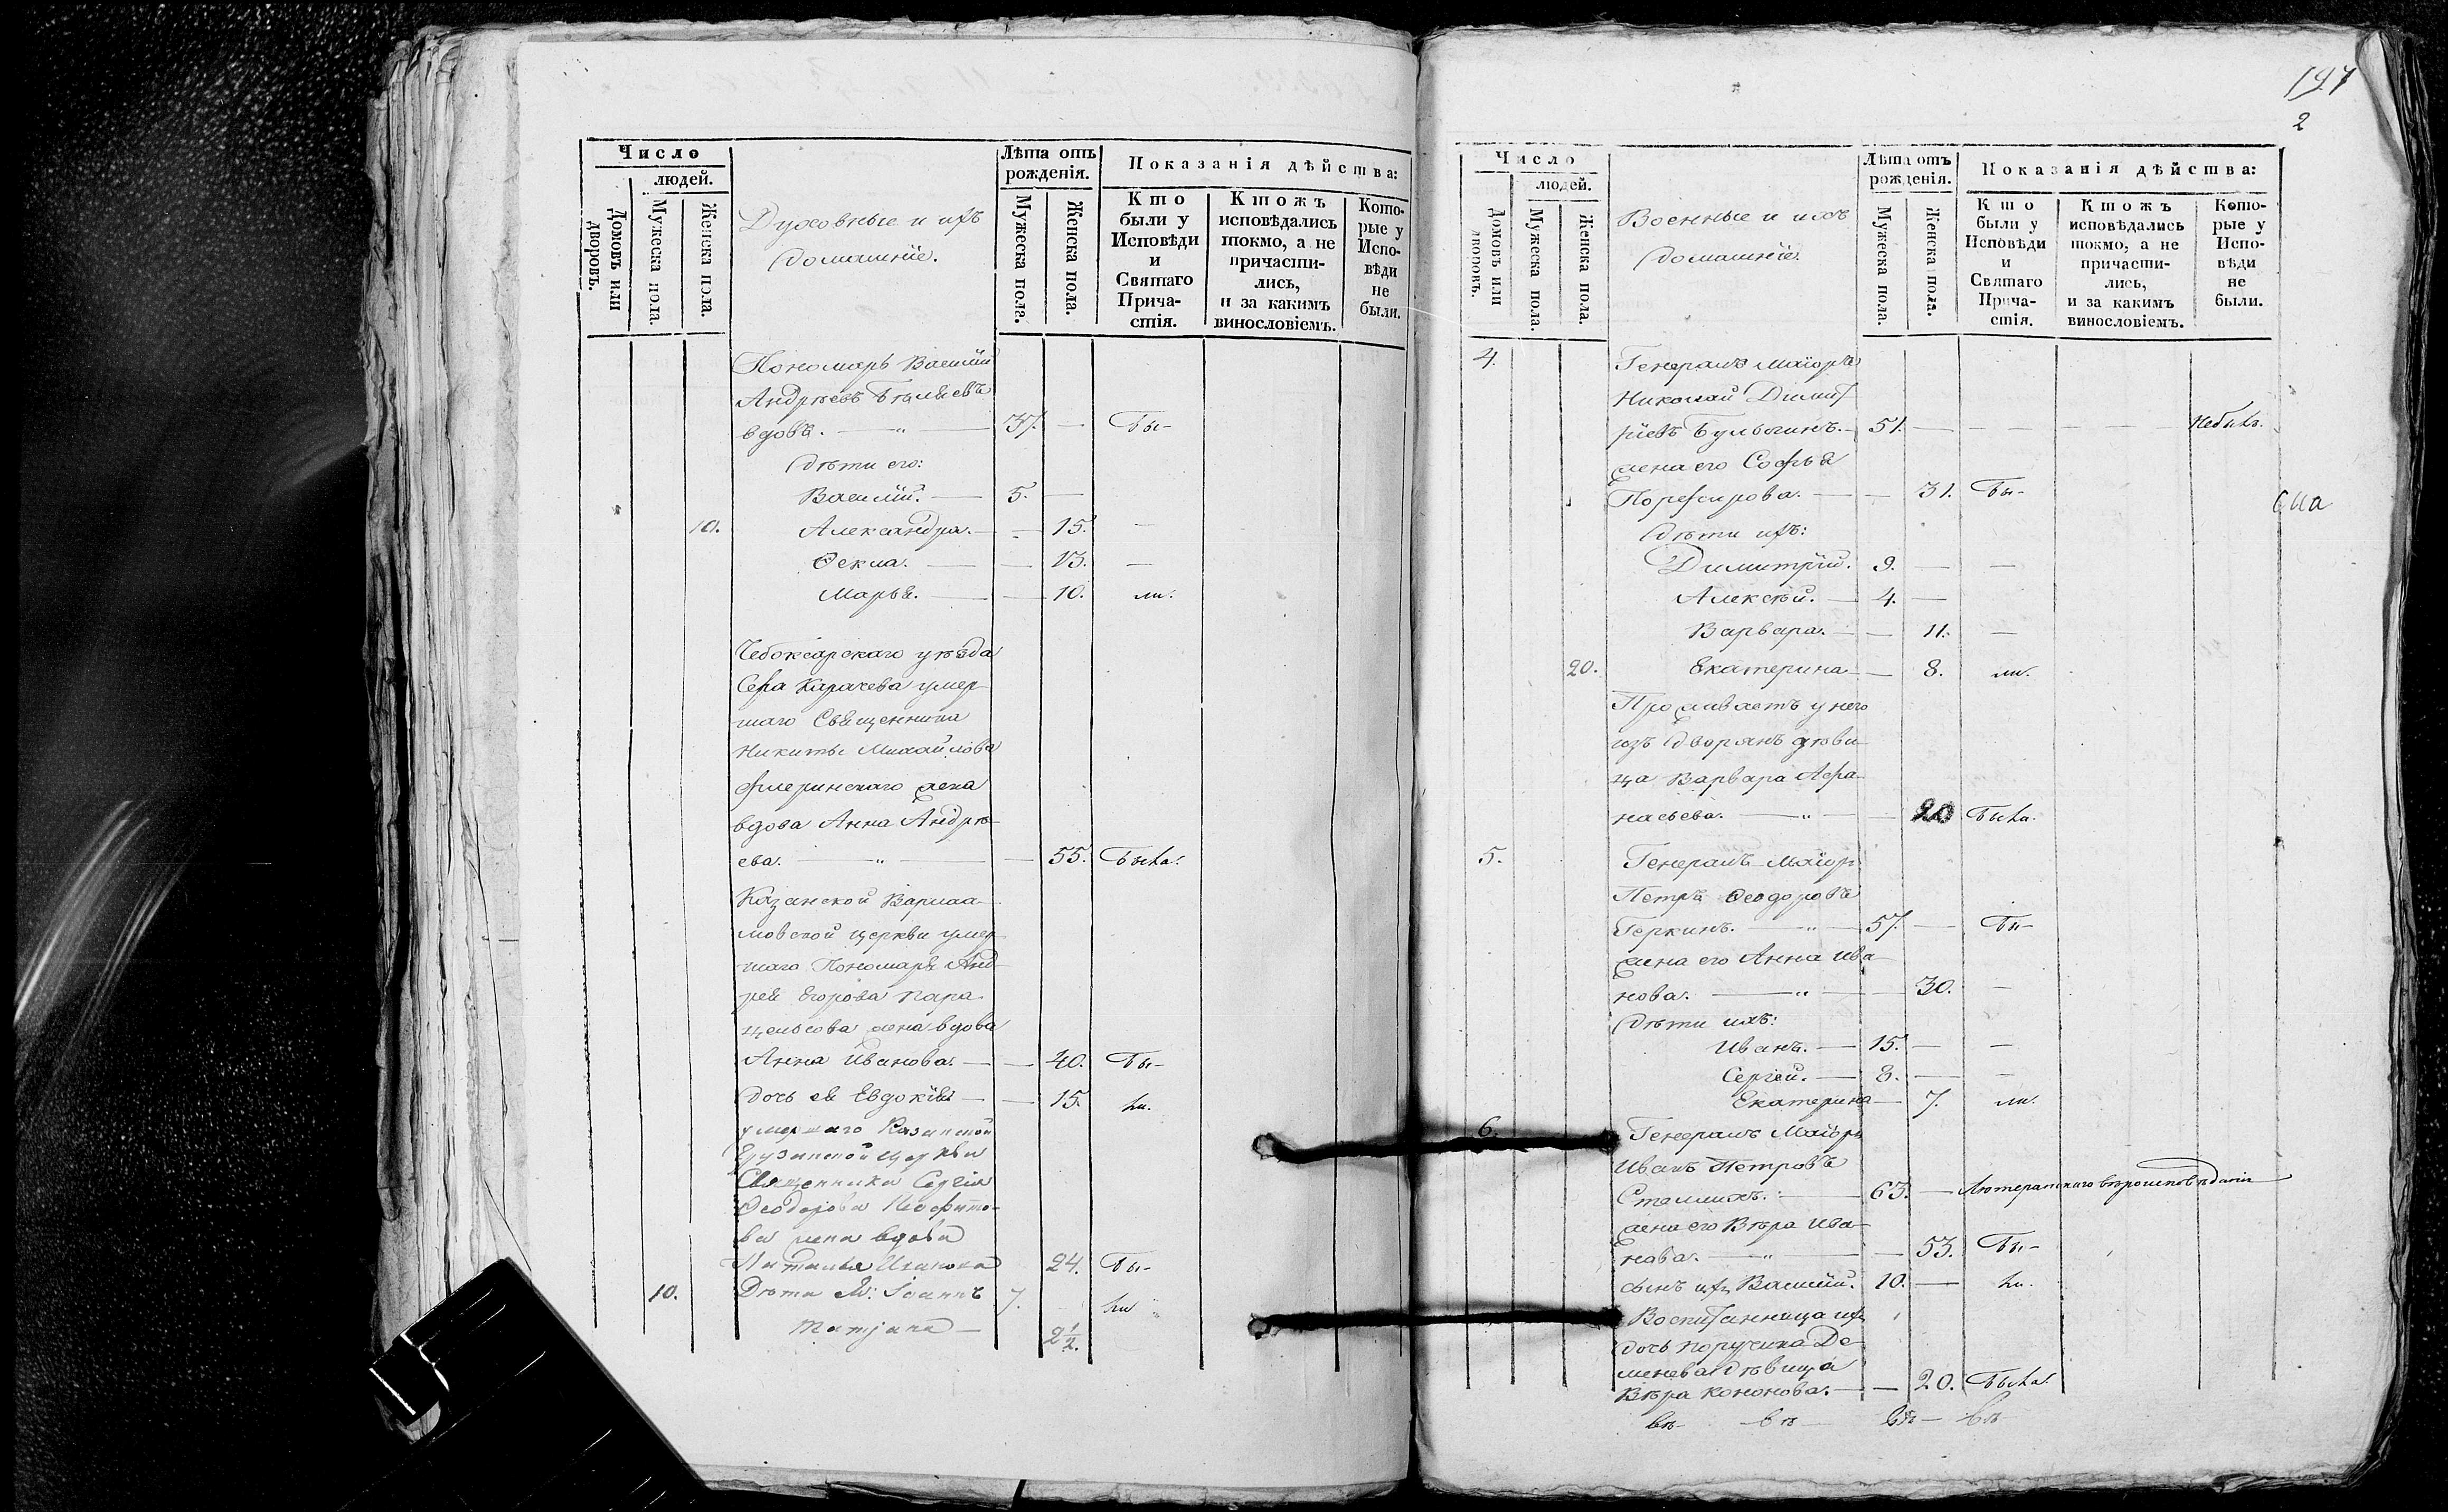 Число
людей.
Домовъ или дворовъ.
Мужеска пола.
Женска пола.
Духовные и ихъ
домашніе.
Лѣта отъ
рожденія.
Мужеска пола.
Женска пола.
Показанія дѣйства:
Кто
были у
Исповѣди
и
Святаго
Прича-
стія.
Ктожъ
исповѣдались
токмо, а не
причасти-
лись,
и за какимъ
винословіемъ.
Кото-
рые у
Испо-
вѣди
не
были.
Пономарь Василій
Андреевъ Бѣляевъ
вдовъ. — „ — 37. — Бы-
Дѣти его:
Василій. — 5. —
10. Александра. — - 15. —
Ѳекла. — — 13. —
Марья. — — 10. ли.
Чебоксарскаго уѣзда
Села Карачева умер
шаго Священника
Никиты Михайлова
жена
вдова Анна Андрѣ-
ева. — „ — — 55. Была.
Казанской Варлаа-
мовской церкви умер
шаго Пономаря Анд-
рея Егорова Пара-
цельсова жена вдова
Анна Иванова. — — 40. Бы-
дочь ея Евдокія — — 15. ли.
умершаго Казанской
Грузинской церкви
Священника Сергія
Ѳеодорова
ва жена вдова
Наталья 24. Бы-
10. Дѣти ея: Іоаннъ 7. ли
Татьяна — 2½.
197
2
Число
людей.
Домовъ или дворовъ.
Мужеска пола.
Женска пола.
Военные и ихъ
домашніе.
Лѣта отъ
рожденія.
Мужеска пола.
Женска пола.
Показанія дѣйства:
Кто
были у
Исповѣди
и
Святаго
Прича-
стія.
Ктожъ
исповѣдались
токмо, а не
причасти-
лись,
и за какимъ
винословіемъ.
Кото-
рые у
Испо-
вѣди
не
были.
4. Генералъ Маіоръ
Николай Димит
ріевъ Булыгинъ. — 51. — — — — — Небылъ.
жена его Софья
Порфирова. — — 31. Бы-
дѣти ихъ:
Димитрій. 9. — —
Алексѣй. — 4. —
Варвара. — — 11. —
20. Екатерина — — 8. ли.
Проживаетъ у него
изъ дворянъ дѣви-
ца Варвара Афа-
насьева. — „ — — 20 Была.
5. Генералъ Маіоръ
Петръ Ѳеодоровъ
Геркинъ. — „ — 57. — Бы-
жена его Анна Ива-
нова. — „ — — 30. —
дѣти ихъ:
Иванъ. — 15. — —
Сергій. — 8. — —
Екатерина — 7. ли.
6. Генералъ Маіоръ
Иванъ Петровъ
63. — Лютеранскаго вѣроисповѣданія
жена его Вѣра Ива-
нова. — „ — — 53. Бы-
сынъ ихъ Василій. 10. — ли.
Воспитанница ихъ
дочь поручика Де-
менева дѣвица
Вѣра Кононова. — — 20. Была.